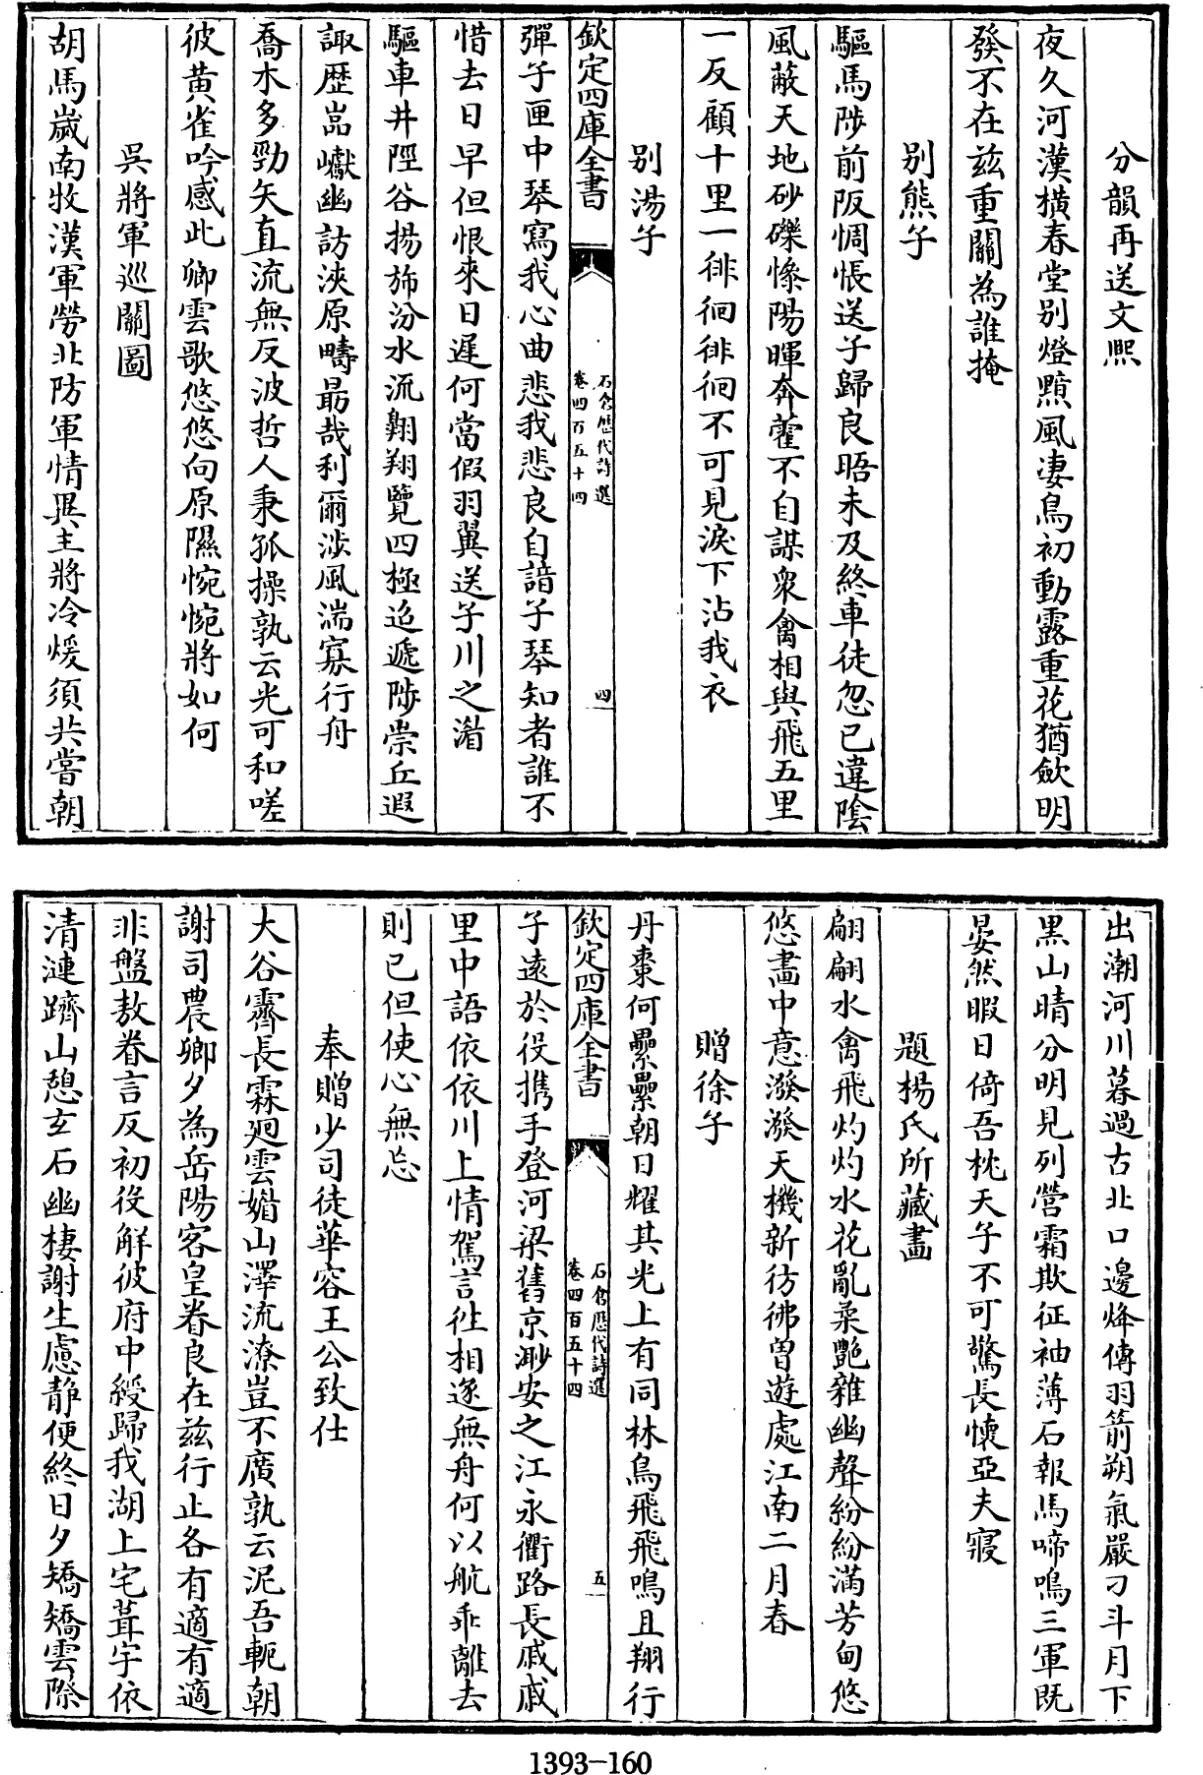 分韻再送文熈
夜久河漢横春堂别燈㸃風凄鳥初動露重花猶斂明
發不在兹重關為誰掩
别熊子
驅馬陟前阪惆悵送子歸良晤未及終車徒忽已違陰
風蔽天地砂礫慘陽暉奔藿不自謀衆禽相與飛五里
一反顧十里一徘徊徘徊不可見淚下沾我衣
别湯子
欽定四庫全書
石倉歴代詩選
卷四百五十四
四
彈子匣中琴寫我心曲悲我悲良自諳子琴知者誰不
惜去日早但恨來日遲何當假羽翼送子川之湄
驅車井陘谷揚斾汾水流翺翔覽四極迢遞陟崇丘遐
諏歴嵓巘幽訪浹原疇最哉利爾涉風湍寡行舟
喬木多勁矢直流無反波哲人秉孤操孰云光可和嗟
彼黄雀吟感此卿雲歌悠悠向原隰惋惋將如何
呉將軍巡關圖
胡馬嵗南牧漢軍勞北防軍情異主將冷煖須共嘗朝
出潮河川暮過古北口邊烽傳羽箭朔氣嚴刁斗月下
黒山晴分明見列營霜欺征袖薄石報馬啼鳴三軍既
晏然暇日倚吾枕天子不可驚長懐亞夫寢
題楊氏所藏畫
翩翩水禽飛灼灼水花亂柔艷雜幽聲紛紛滿芳甸悠
悠畫中意潑潑天機新彷彿曽遊處江南二月春
贈徐子
丹棗何纍纍朝日耀其光上有同林鳥飛飛鳴且翔行
欽定四庫全書
石倉歴代詩選
卷四百五十四
五
子逺於役携手登河梁舊京渺安之江永衢路長戚戚
里中語依依川上情駕言徃相逐無舟何以航乖離去
則已但使心無忘
奉贈少司徒華容王公致仕
大谷霽長霖廻雲媚山澤流潦豈不廣孰云泥吾軛朝
謝司農卿夕為岳陽客皇眷良在兹行止各有適有適
非盤敖眷言反初役解彼府中綬歸我湖上宅葺宇依
清漣躋山憩玄石幽棲謝生慮静便終日夕矯矯雲際
1393-160